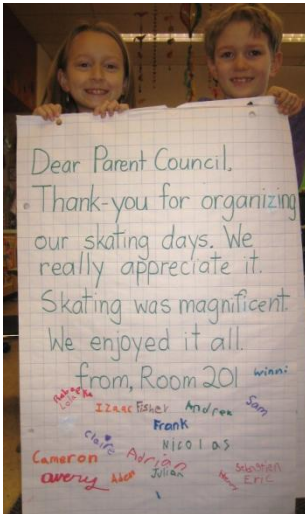 Dear Parent Council,
Thank-you for organizing
our skating days. We
really appreciate it.
Skating was magnificent.
We enjoyed it all.
from, Room 201 winni
Izaac Fisher Andrew Sam
Frank
Claire Nicolas
Cameron Adrian Sebastien
avery Aden Julian Henry Eric